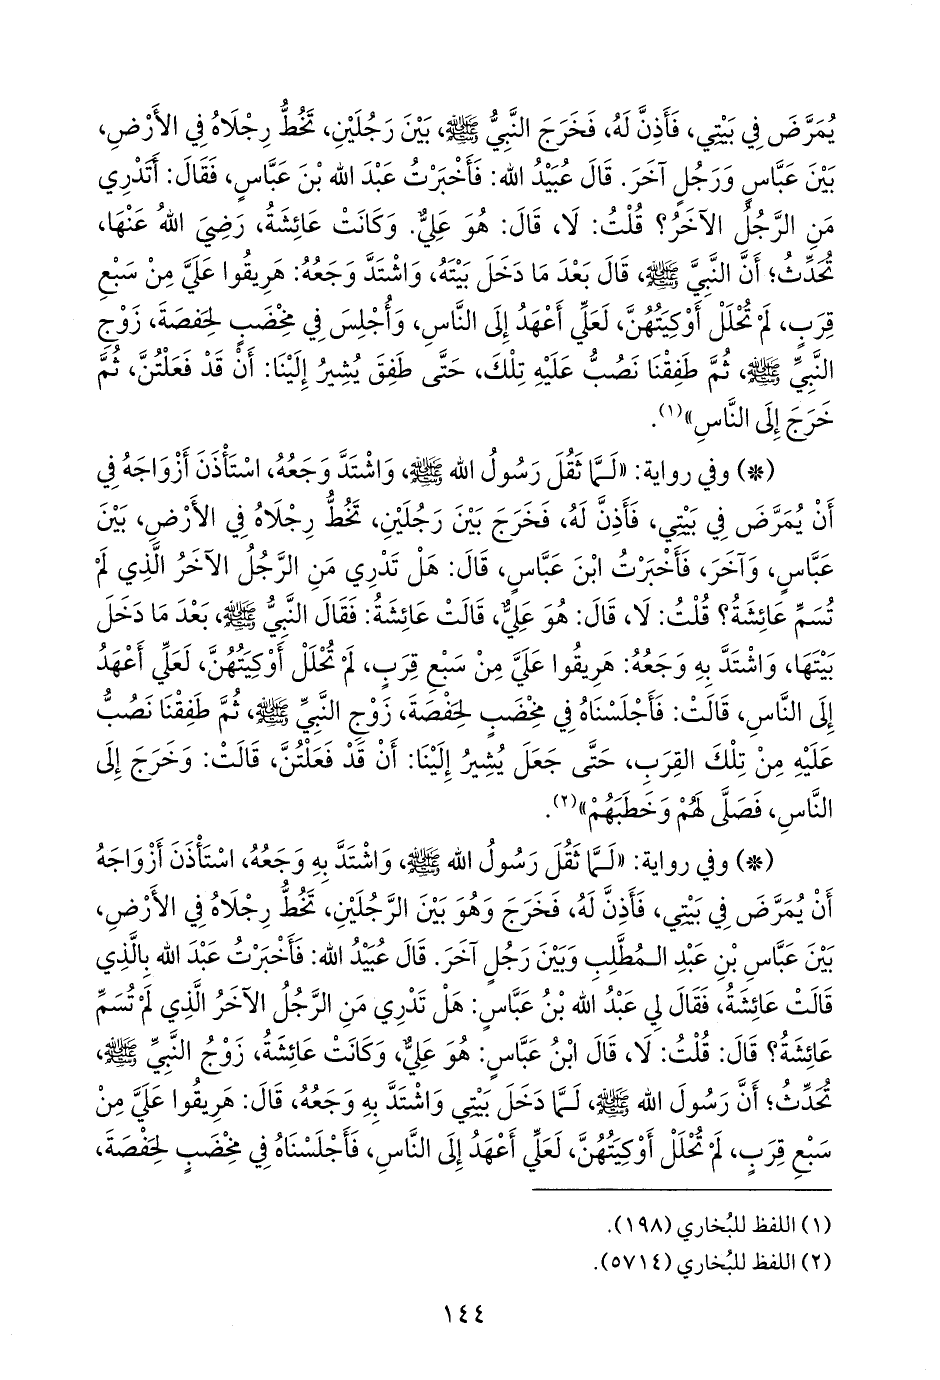 يُمَرَّضَ فِي بَيْتِي، فَأَذِنَّ لَهُ، فَخَرَجَ النَّبِيُّ ﷺ، بَيْنَ رَجُلَيْنِ، تَخُطُّ رِجْلَاهُ فِي الأَرْضِ،
بَيْنَ عَبَّاسٍ وَرَجُلٍ آخَرَ. قَالَ عُبَيْدُ الله: فَأَخْبَرْتُ عَبْدَ الله بْنَ عَبَّاسٍ، فَقَالَ: أَتَدْرِي
مَنِ الرَّجُلُ الآخَرُ؟ قُلْتُ: لَا، قَالَ: هُوَ عَلِيٌّ. وَكَانَتْ عَائِشَةُ، رَضِيَ اللهُ عَنْهَا،
تُحَدِّثُ؛ أَنَّ النَّبِيَّ ﷺ، قَالَ بَعْدَ مَا دَخَلَ بَيْتَهُ، وَاشْتَدَّ وَجَعُهُ: هَرِيقُوا عَلَيَّ مِنْ سَبْعِ
قِرَبٍ، لَمْ تُحْلَلْ أَوْكِيَتُهُنَّ، لَعَلِّي أَعْهَدُ إِلَى النَّاسِ، وَأُجْلِسَ فِي مِخْضَبٍ لِحَفْصَةَ، زَوْجِ
النَّبِيِّ ﷺ، ثُمَّ طَفِقْنَا نَصُبُّ عَلَيْهِ تِلْكَ، حَتَّى طَفِقَ يُشِيرُ إِلَيْنَا: أَنْ قَدْ فَعَلْتُنَّ، ثُمَّ
خَرَجَ إِلَى النَّاسِ»(١).
(*) وفي رواية: «لَمَّا ثَقُلَ رَسُولُ الله ﷺ، وَاشْتَدَّ وَجَعُهُ، اسْتَأْذَنَ أَزْوَاجَهُ فِي
أَنْ يُمَرَّضَ فِي بَيْتِي، فَأَذِنَّ لَهُ، فَخَرَجَ بَيْنَ رَجُلَيْنِ، تَخُطُّ رِجْلَاهُ فِي الأَرْضِ، بَيْنَ
عَبَّاسٍ، وَآخَرَ، فَأَخْبَرْتُ ابْنَ عَبَّاسٍ، قَالَ: هَلْ تَدْرِي مَنِ الرَّجُلُ الآخَرُ الَّذِي لَمْ
تُسَمِّ عَائِشَةُ؟ قُلْتُ: لَا، قَالَ: هُوَ عَلِيٌّ، قَالَتْ عَائِشَةُ: فَقَالَ النَّبِيُّ ﷺ، بَعْدَ مَا دَخَلَ
بَيْتَهَا، وَاشْتَدَّ بِهِ وَجَعُهُ: هَرِيقُوا عَلَيَّ مِنْ سَبْعِ قِرَبٍ، لَمْ تُحْلَلْ أَوْكِيَتُهُنَّ، لَعَلِّي أَعْهَدُ
إِلَى النَّاسِ، قَالَتْ: فَأَجْلَسْنَاهُ فِي مِخْضَبٍ لِحَفْصَةَ، زَوْجِ النَّبِيِّ ﷺ، ثُمَّ طَفِقْنَا نَصُبُّ
عَلَيْهِ مِنْ تِلْكَ القِرَبِ، حَتَّى جَعَلَ يُشِيرُ إِلَيْنَا: أَنْ قَدْ فَعَلْتُنَّ، قَالَتْ: وَخَرَجَ إِلَى
النَّاسِ، فَصَلَّى لَهُمْ وَخَطَبَهُمْ»(٢).
(*) وفي رواية: «لَمَّا ثَقُلَ رَسُولُ الله ﷺ، وَاشْتَدَّ بِهِ وَجَعُهُ، اسْتَأْذَنَ أَزْوَاجَهُ
أَنْ يُمَرَّضَ فِي بَيْتِي، فَأَذِنَّ لَهُ، فَخَرَجَ وَهُوَ بَيْنَ الرَّجُلَيْنِ، تَخُطُّ رِجْلَاهُ فِي الأَرْضِ،
بَيْنَ عَبَّاسِ بْنِ عَبْدِ المُطَّلِبِ وَبَيْنَ رَجُلٍ آخَرَ. قَالَ عُبَيْدُ الله: فَأَخْبَرْتُ عَبْدَ الله بِالَّذِي
قَالَتْ عَائِشَةُ، فَقَالَ لِي عَبْدُ الله بْنُ عَبَّاسٍ: هَلْ تَدْرِي مَنِ الرَّجُلُ الآخَرُ الَّذِي لَمْ تُسَمِّ
عَائِشَةُ؟ قَالَ: قُلْتُ: لَا، قَالَ ابْنُ عَبَّاسٍ: هُوَ عَلِيٌّ، وَكَانَتْ عَائِشَةُ، زَوْجُ النَّبِيِّ ﷺ،
تُحَدِّثُ؛ أَنَّ رَسُولَ الله ﷺ، لَمَّا دَخَلَ بَيْتِي وَاشْتَدَّ بِهِ وَجَعُهُ، قَالَ: هَرِيقُوا عَلَيَّ مِنْ
سَبْعِ قِرَبٍ، لَمْ تُحْلَلْ أَوْكِيَتُهُنَّ، لَعَلِّي أَعْهَدُ إِلَى النَّاسِ، فَأَجْلَسْنَاهُ فِي مِخْضَبٍ لِحَفْصَةَ،
(١) اللفظ للبُخاري (١٩٨).
(٢) اللفظ للبُخاري (٥٧١٤).
١٤٤